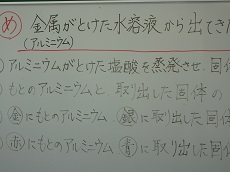 め 金属がとけた水溶液から出てき
(アルミニウム)
アルミニウムがとけた塩酸を蒸発させ、固体
もとのアルミニウムと取り出した固体の
金にもとのアルミニウム 銀に取り出した固
赤にもとのアルミニウム 青に取り出した固